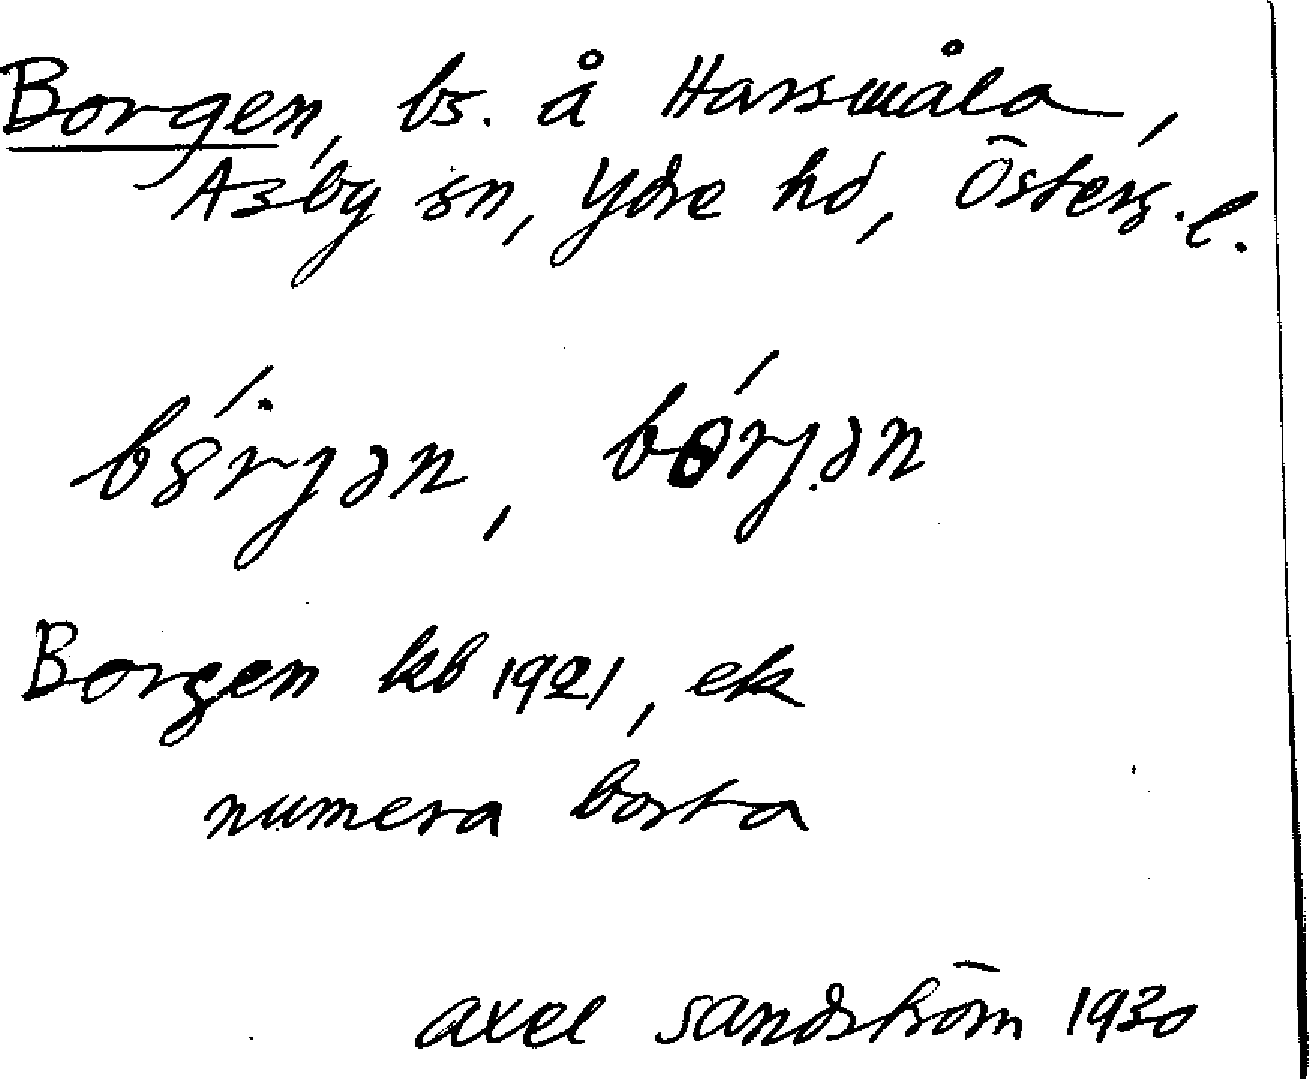 Borgen, bs. å Harsmåla,
Asby sn, Ydre hd, Österg. l.
bórjən, bórjən
Borgen kb 1921, ek
numera borta
axel sandström 1930